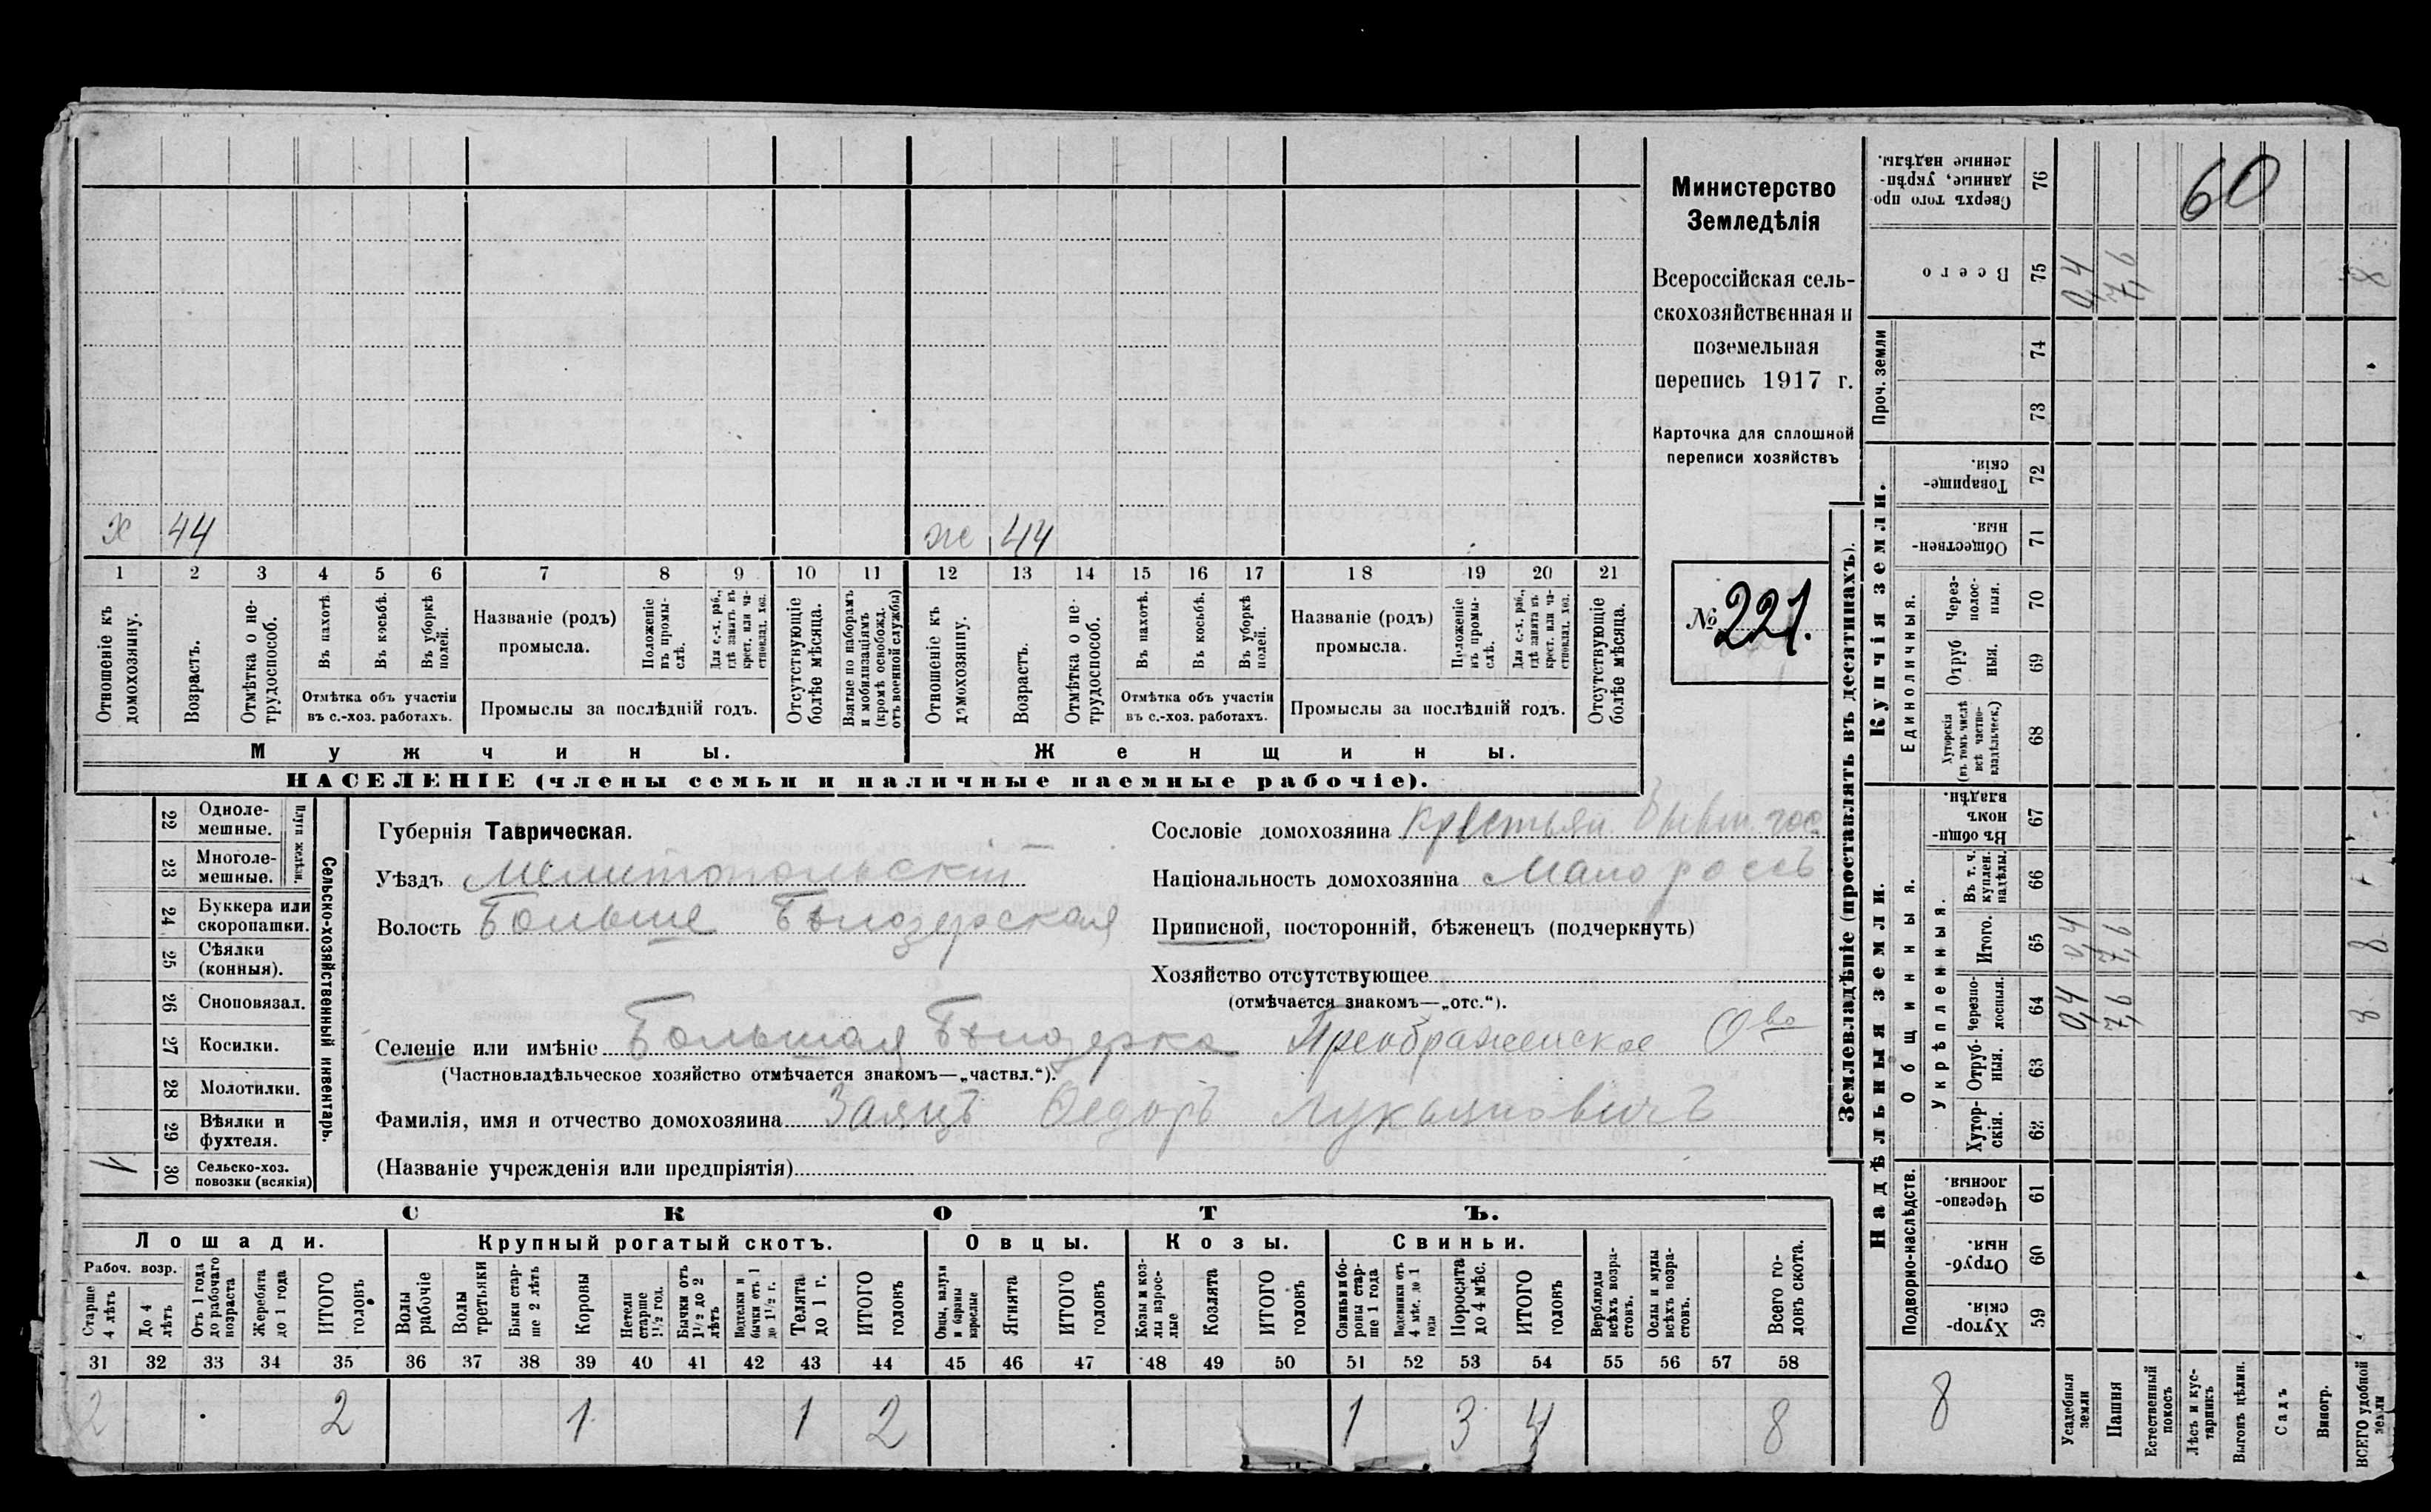 60
Министерство
Земледѣлія
Всероссійская сель-
скохозяйственная и
поземельная
перепись 1917 г.
Карточка для сплошной
переписи хозяйствъ
№ 221.
х 44 ж 44
1 2 3 4 5 6 7 8 9 10 11 12 13 14 15 16 17 18 19 20 21
Отношеніе къ домохозяину.
Возрастъ.
Отмѣтка о не-трудоспособ.
Въ пахотѣ.
Въ косьбѣ.
Въ уборкѣ полей.
Отмѣтка объ участіи
въ с.-хоз. работахъ.
Названіе (родъ)
промысла.
Положеніе въ промы-слѣ.
Для с.-х. раб., гдѣ занятъ въ крест. или ча-стновлад. хоз.
Промыслы за послѣдній годъ.
Отсутствующіе болѣе мѣсяца.
Взятые по наборамъ и мобилизаціямъ (кромѣ освобожд. отъ военной службы)
Отношеніе къ домохозяину.
Возрастъ.
Отмѣтка о не-трудоспособ.
Въ пахотѣ.
Въ косьбѣ.
Въ уборкѣ полей.
Отмѣтка объ участіи
въ с.-хоз. работахъ.
Названіе (родъ)
промысла.
Положеніе въ промы-слѣ.
Для с.-х. раб., гдѣ занята въ крест. или ча-стновлад. хоз.
Промыслы за послѣдній годъ.
Отсутствующіе болѣе мѣсяца.
Мужчины. Женщины.
НАСЕЛЕНІЕ (члены семьи и наличные наемные рабочіе).
22 Одноле-мешные.
23 Многоле-мешные.
Плуги желѣзн.
24 Буккера или скоропашки.
25 Сѣялки (конныя).
26 Сноповязал.
27 Косилки.
28 Молотилки.
29 Вѣялки и фухтеля.
30 Сельско-хоз. повозки (всякія)
Сельско-хозяйственный инвентарь.
Губернія Таврическая.
Уѣздъ Мелитопольскій
Волость Больше Бѣлозерская
Сословіе домохозяина Крестьян бывш. гос.
Національность домохозяина Малороссъ
Приписной, посторонній, бѣженецъ (подчеркнуть)
Хозяйство отсутствующее
(отмѣчается знакомъ—„отс.“).
Селеніе или имѣніе Большая Бѣлозерка Преображенское О-во
(Частновладѣльческое хозяйство отмѣчается знакомъ—„частвл.“).
Фамилія, имя и отчество домохозяина Заяцъ Федоръ Лукьяновичъ
(Названіе учрежденія или предпріятія)
СКОТЪ.
Лошади. Крупный рогатый скотъ. Овцы. Козы. Свиньи.
Рабоч. возр.
Старше 4 лѣтъ
До 4 лѣтъ
Отъ 1 года до рабочаго возраста
Жеребята до 1 года
ИТОГО головъ
Волы рабочіе
Волы третьяки
Быки стар-ше 2 лѣтъ
Коровы
Нетели старше 1½ год.
Бычки отъ 1½ до 2 лѣтъ
Подтелки и бычки отъ 1 до 1½ г.
Телята до 1 г.
ИТОГО головъ
Овцы, валухи и бараны взрослые
Ягнята
ИТОГО головъ
Козы и коз-лы взрос-лые
Козлята
ИТОГО головъ
Свиньи и бо-ровы стар-ше 1 года
Подсвинки отъ 4 мѣс. до 1 года
Поросята до 4 мѣс.
ИТОГО головъ
Верблюды всѣхъ возра-стовъ.
Ослы и мулы всѣхъ возра-стовъ.
Всего го-ловъ скота.
31 32 33 34 35 36 37 38 39 40 41 42 43 44 45 46 47 48 49 50 51 52 53 54 55 56 57 58
2 2 1 1 2 1 3 4 8
Землевладѣніе (проставлять въ десятинахъ).
Купчія земли.
Надѣльныя земли.
Сверхъ того про-данные, укрѣп-ленные надѣлы. 76
Всего 75 0,4 7,6 8
Проч. земли
74
73
Товарище-скія. 72
Обществен-ныя. 71
Единоличныя.
Через-полос-ныя. 70
Отруб-ныя. 69
Хуторскія (въ томъ числѣ всѣ частно-владѣльческ.) 68
Общинныя.
Въ общин-номъ владѣн. 67
Укрѣпленныя.
Въ т. ч. куплен. надѣлы. 66
Итого. 65 0,4 7,6 8
Черезпо-лосныя. 64 0,4 7,6 8
Отруб-ныя. 63
Хутор-скія. 62
Подворно-наслѣдств.
Черезпо-лосныя. 61
Отруб-ныя. 60
Хутор-скія. 59
8
Усадебныя земли
Пашня
Естественный покосъ
Лѣсъ и кус-тарникъ
Выгонъ цѣлин.
Садъ
Виногр.
ВСЕГО удобной земли